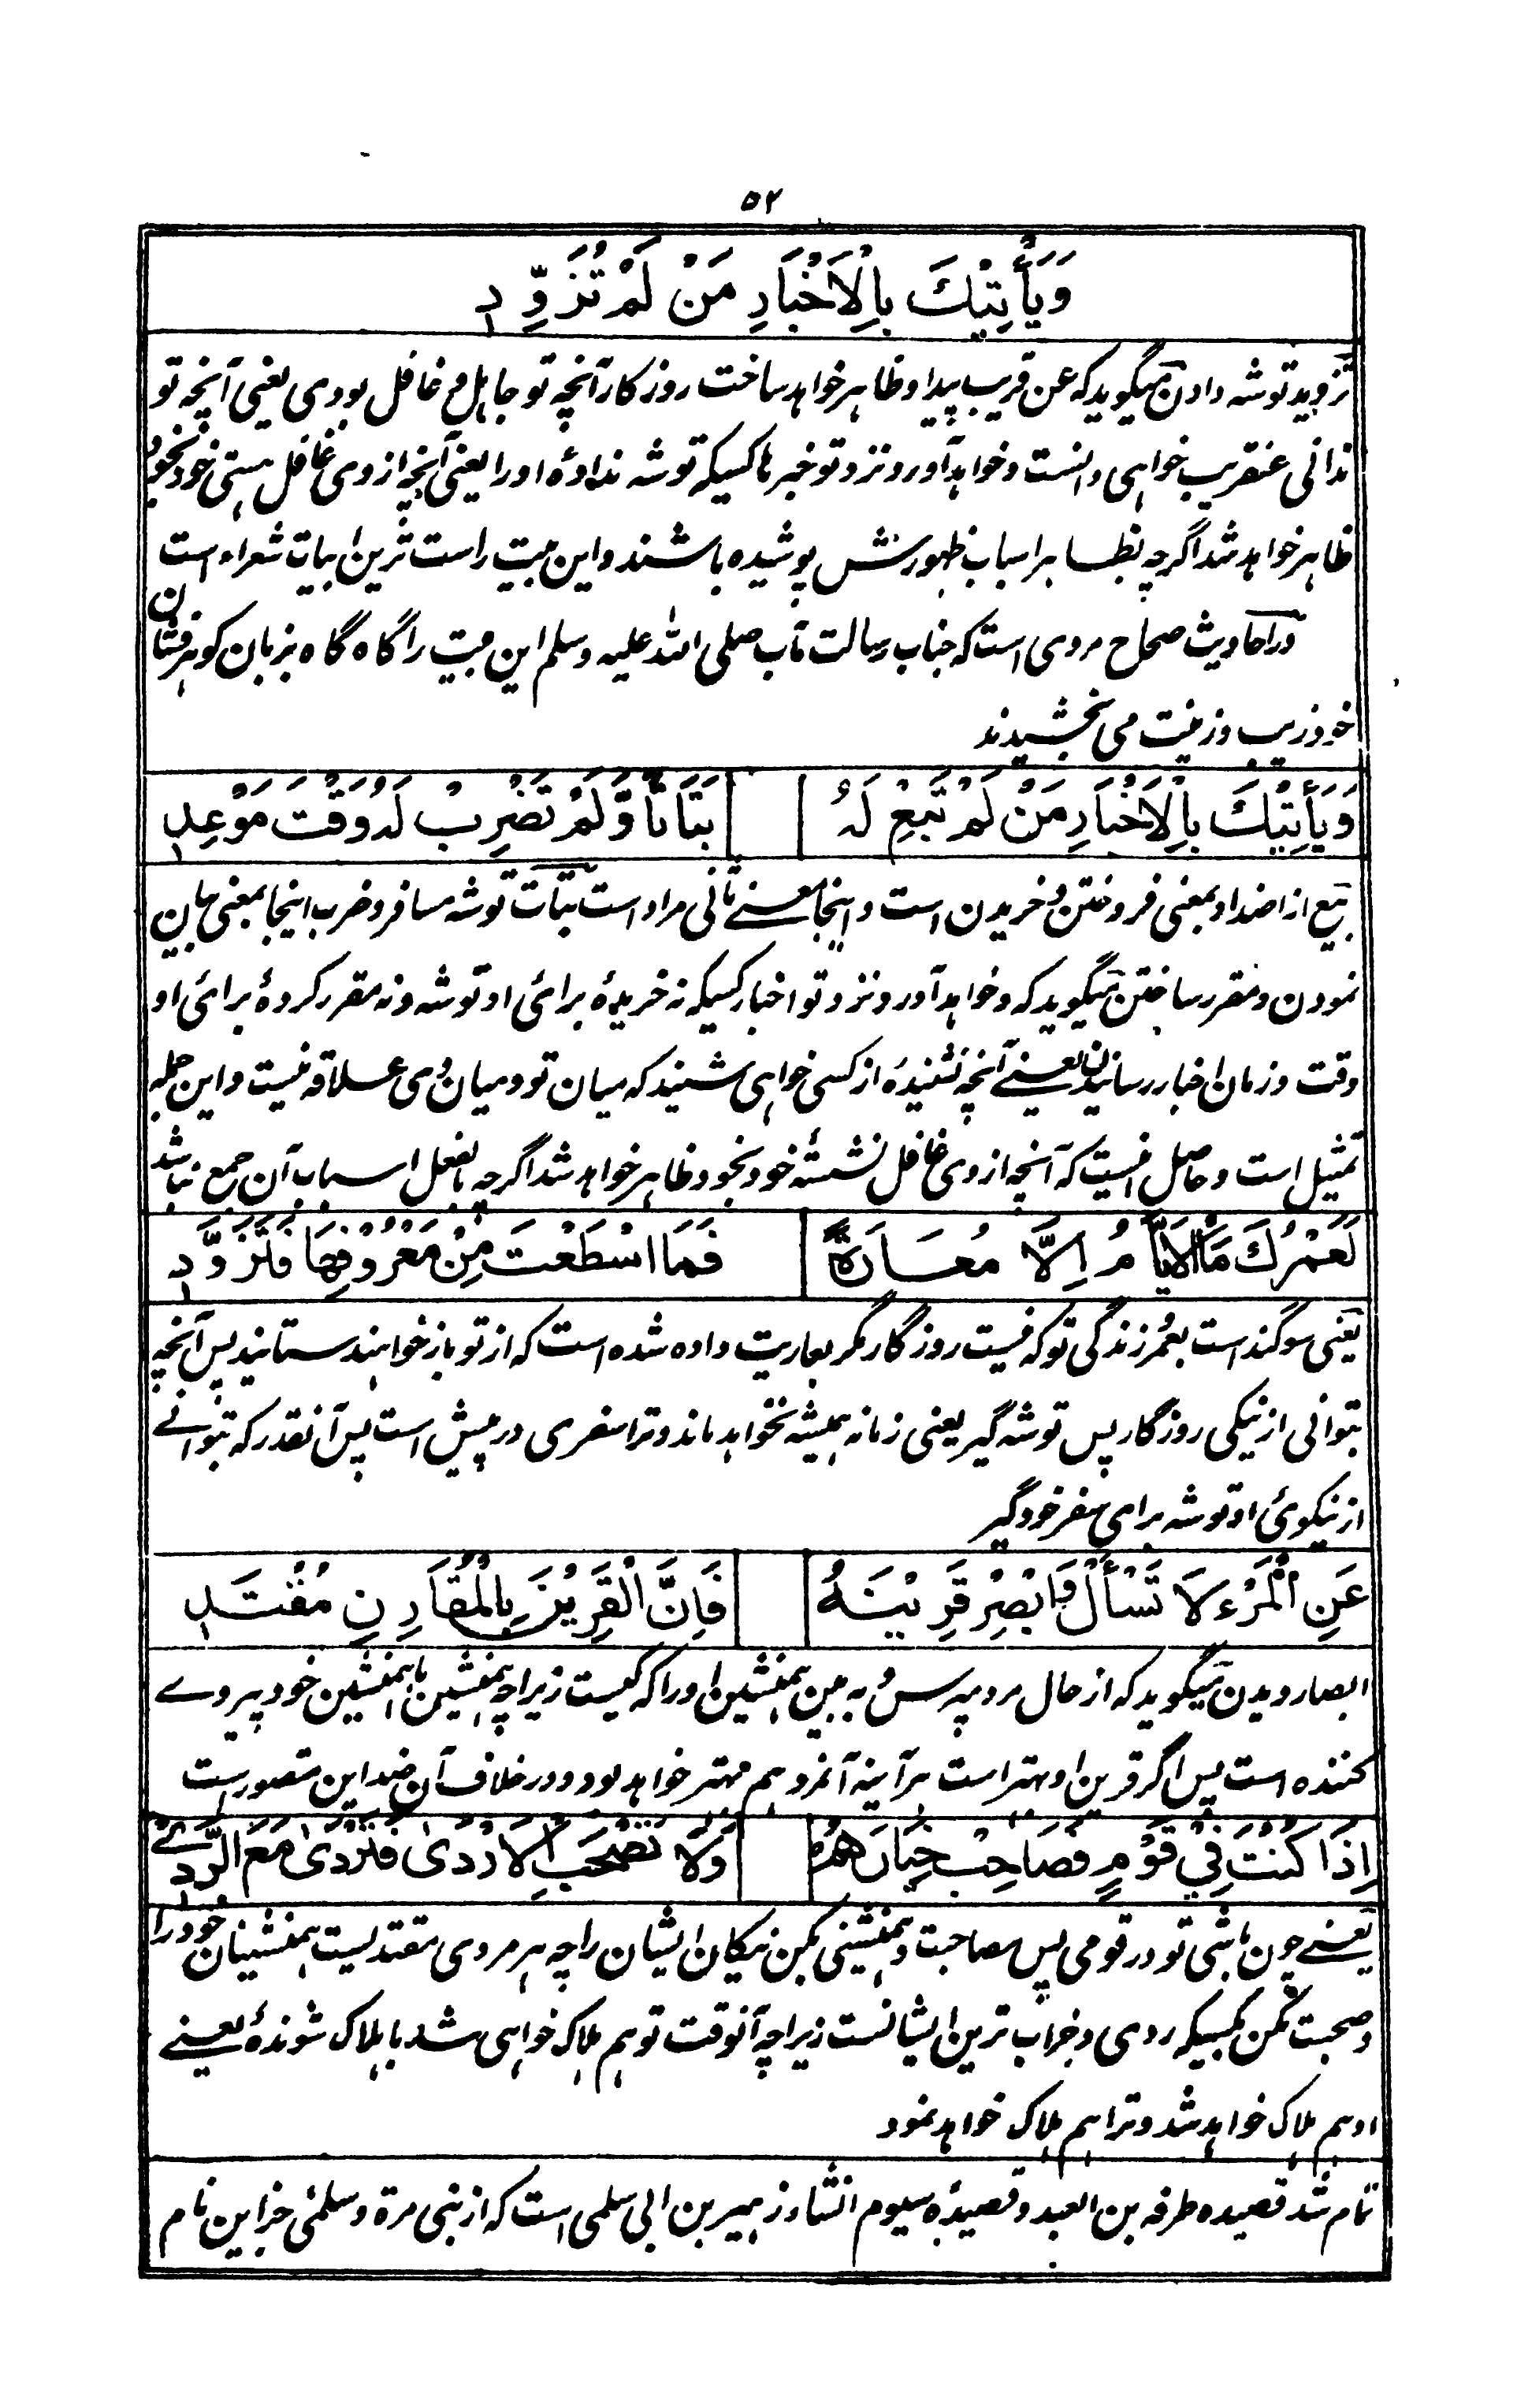 ۵۲
وَيَأْتِيْكَ بِالْاَخْبَارِ مَنْ لَمْ تُزَوِّدِ
تزوید توشه دادن میگوید که عن قریب پیدا و ظاهر خواهد ساخت روزگار آنچه تو جاهل و غافل بودی یعنی آنچه تو
ندانی عنقریب خواهی دانست و خواهد آورد نزد تو خبرها کسیکه توشه ندادهٔ او را یعنی آنچه از وی غافل هستی خود بخود
ظاهر خواهد شد اگرچه بظاهر اسباب ظهورش پوشیده باشند و این بیت راست ترین ابیات شعراء است
در احادیث صحاح مروی است که جناب رسالت مآب صلی الله علیه وسلم این بیت را گاه گاه بزبان گوهرفشان
خود زیب و زینت می بخشیدند
وَيَأْتِيْكَ بِالْاَخْبَارِ مَنْ لَمْ تَبِعْ لَهُ بَتَاتًا وَّلَمْ تَضْرِبْ لَهُ وَقْتَ مَوْعِدِ
بیع از اضداد بمعنی فروختن و خریدن است و اینجا معنے ثانی مراد است بتات توشه مسافر و ضرب اینجا بمعنی بیان
نمودن و مقرر ساختن میگوید که و خواهد آورد نزد تو اخبار کسیکه نه خریدهٔ برای او توشه و نه مقرر کردهٔ برای او
وقت و زمان اخبار رسانیدن یعنے آنچه نشنیدهٔ از کسی خواهی شنید که میان تو و میان وی علاقه نیست و این جمله
تمثیل است و حاصل اینست که آنچه از وی غافل نشستهٔ خود بخود ظاهر خواهد شد اگرچه بالفعل اسباب آن جمع نباشد
لَعَمْرُكَ مَا الْاَيَّامُ اِلَّا مُعَارَةٌ فَمَا اسْطَعْتَ مِنْ مَعْرُوْفِهَا فَتَزَوَّدِ
یعنی سوگند است بعمر زندگی تو که نیست روزگار مگر بعاریت داده شده است که از تو باز خواهند ستانید پس آنچه
بتوانی از نیکی روزگار پس توشه گیر یعنی زمانه همیشه نخواهد ماند و ترا سفری در پیش است پس آنقدر که بتوانے
از نیکوئ او توشه برای سفر خود گیر
عَنِ الْمَرْءِ لَا تَسْأَلْ وَاَبْصِرْ قَرِيْنَهُ فَاِنَّ الْقَرِيْنَ بِالْمُقَارِنِ مُقْتَدِ
ابصار دیدن میگوید که از حال مرد مپرس و به بین همنشین او را که کیست زیراچه همنشین با همنشین خود پیروے
کننده است پس اگر قرین او بهتر است هر آینه آنمرد هم بهتر خواهد بود و در خلاف آن ضد این متصورست
اِذَا كُنْتَ فِيْ قَوْمٍ فَصَاحِبْ خِيَارَهُمْ وَلَا تَصْحَبِ الْاَرْدٰى فَتَرْدٰى مَعَ الرَّدِيْ
یعنے چون باشی تو در قومی پس مصاحبت و همنشینی بکن نیکان ایشان را چه هر مردی مقتدیست همنشینان خود را
و صحبت مکن بکسیکه ردی و خراب ترین ایشانست زیراچه آنوقت تو هم هلاک خواهی شد با هلاک شوندهٔ یعنے
او هم هلاک خواهد شد و ترا هم هلاک خواهد نمود
تمام شد قصیده طرفه بن العبد و قصیدهٔ سیوم انشاء زهیر بن ابی سلمی است که از بنی مرة و سلمی جز این نام